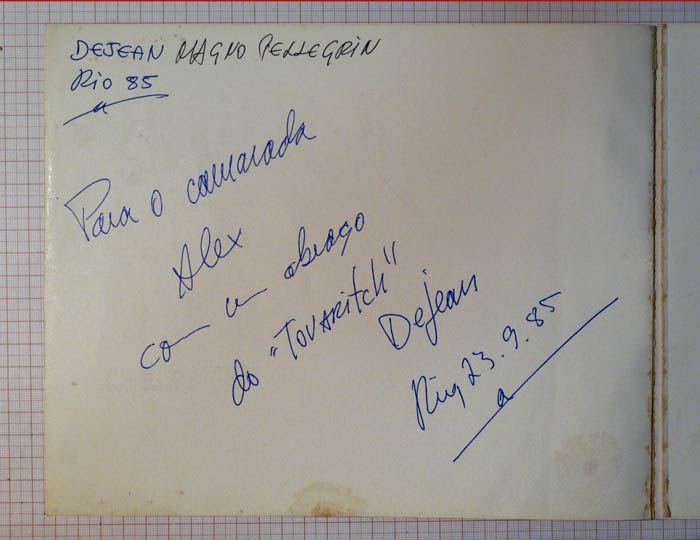 DEJEAN MAGNO PELLEGRIN
Rio 85
Para o camarada
Alex
com um abraço
do "TOVARITCH"
Dejean
Rio, 23.9.85